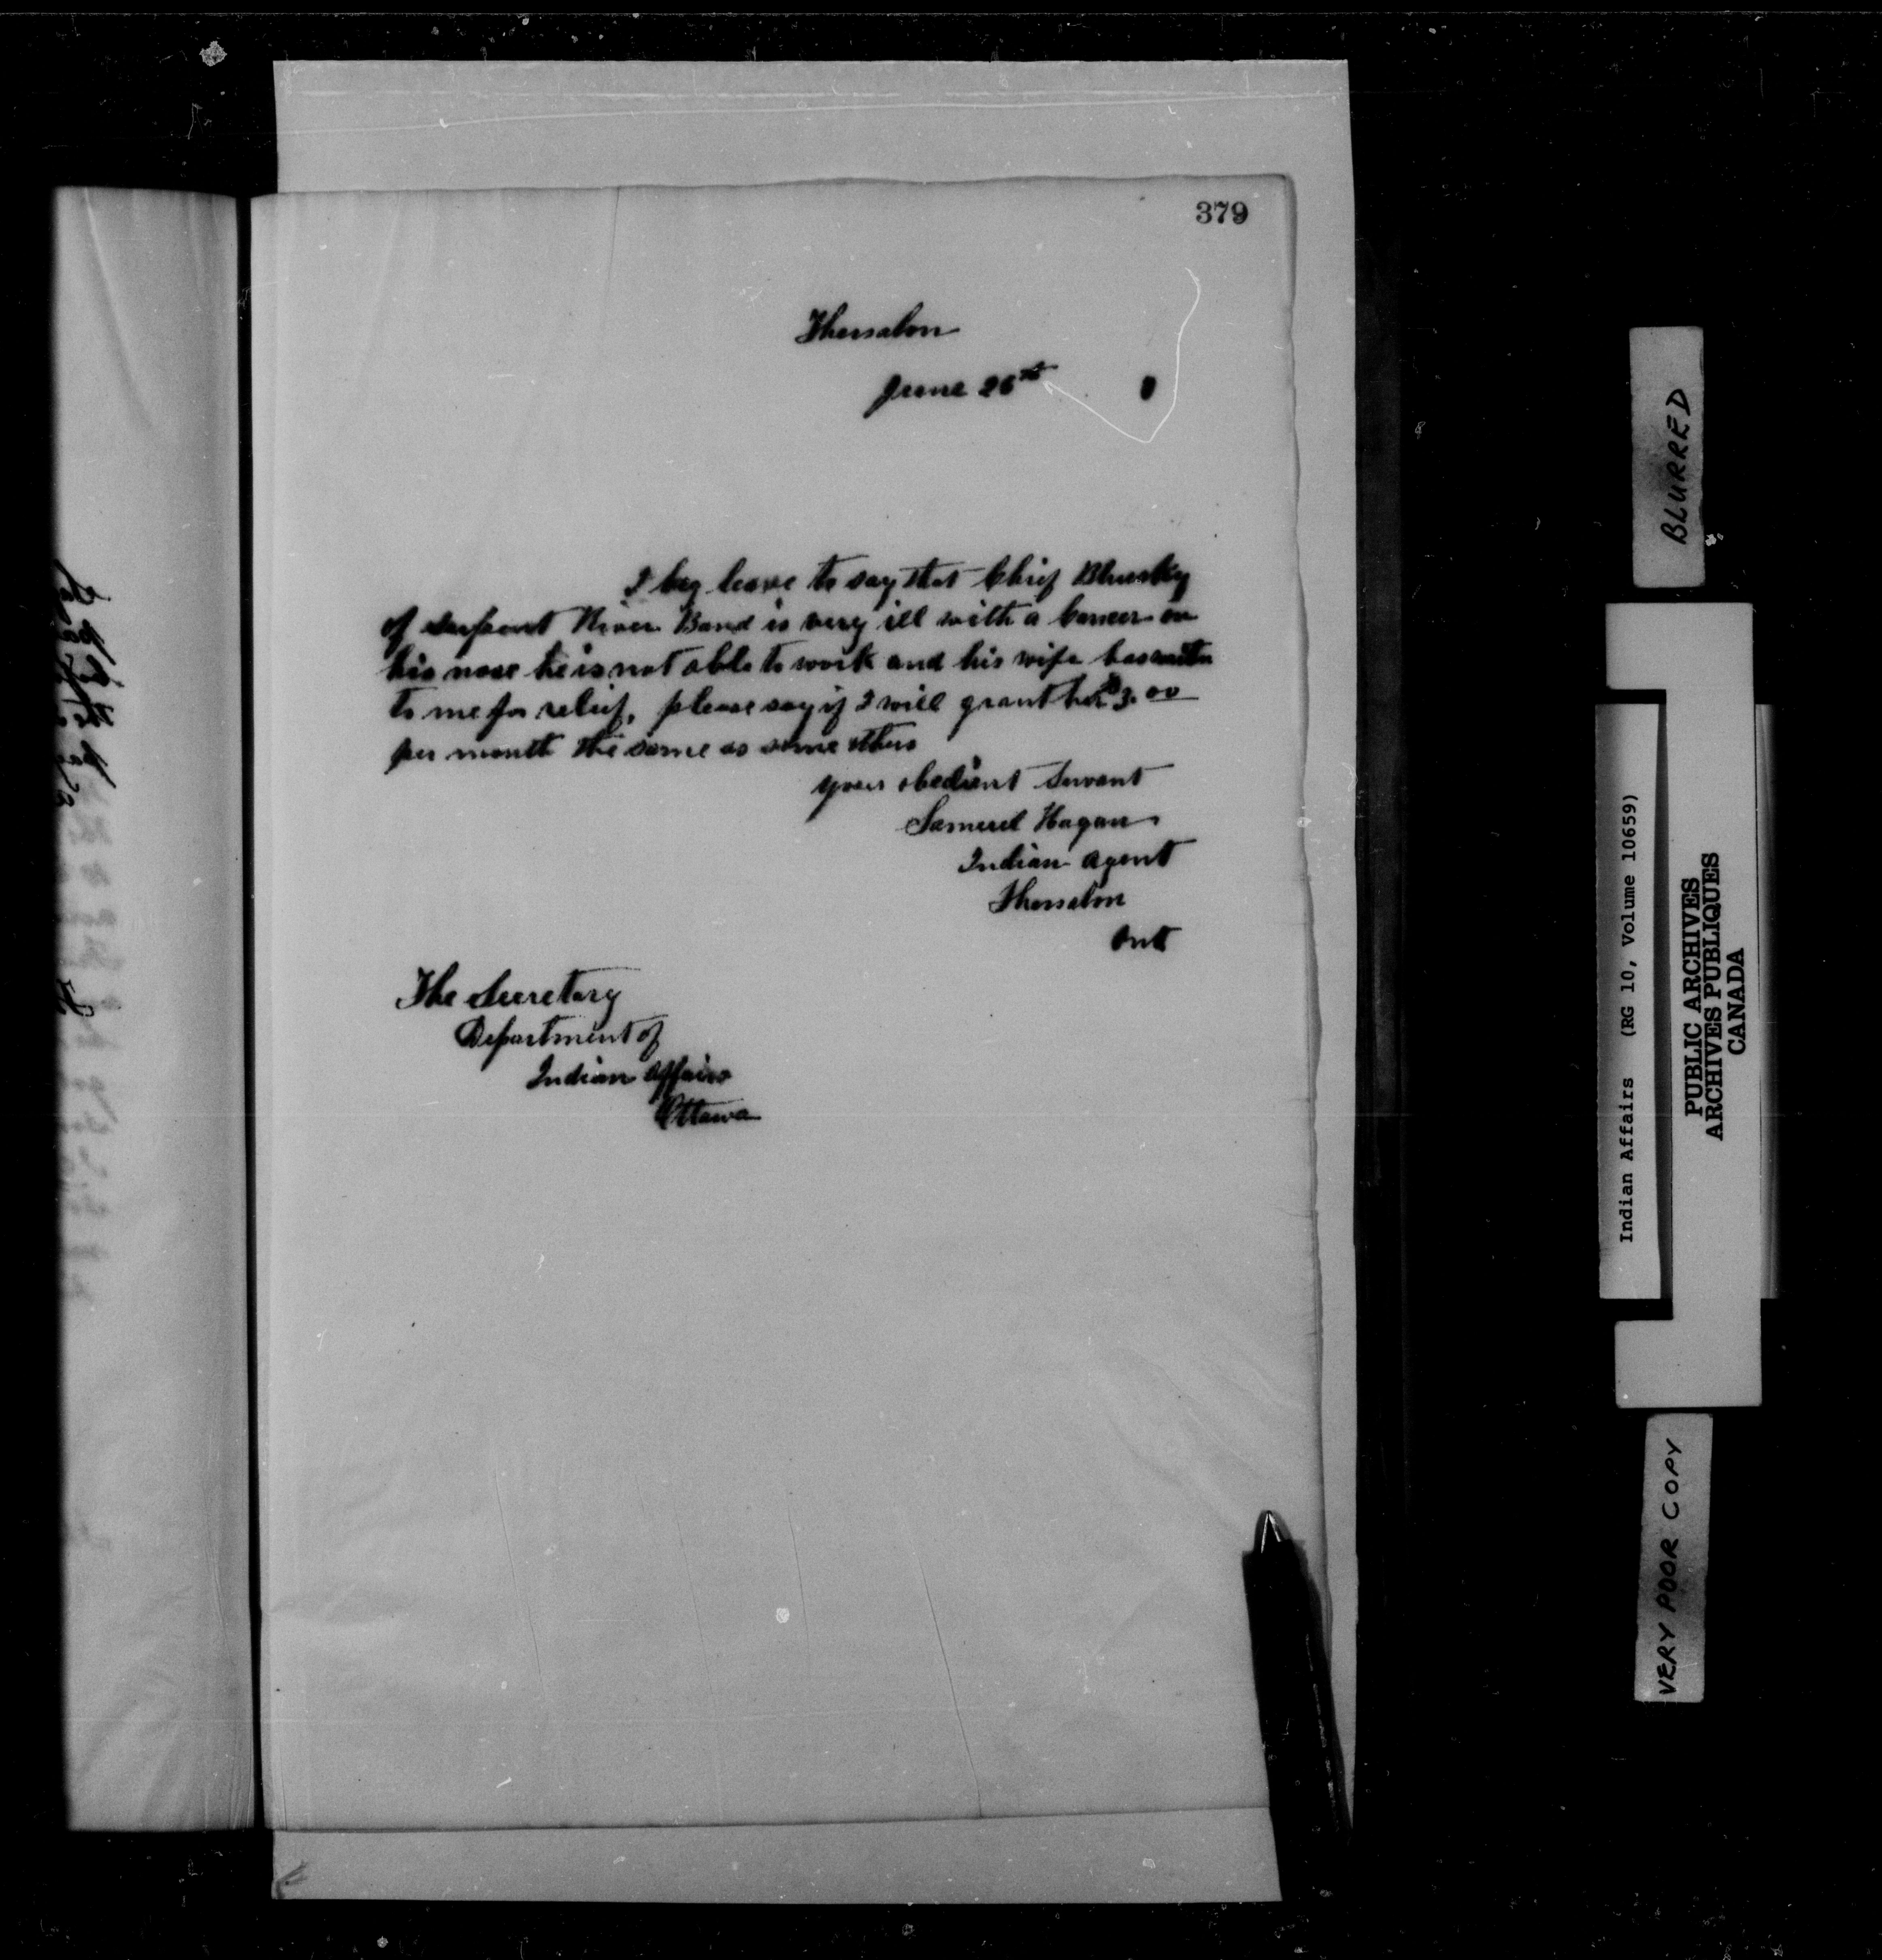 379
Thessalon
June 26th
I beg leave to say that Chief Bluesky
of Serpent River Band is very ill with a cancer on
his nose he is not able to work and his wife has
to me for relief, please say if I will grant her $3.00
per month the same as some others
your obedient Servant
Samuel Hagan
Indian Agent
Thessalon
Ont
The Secretary
Department of
Indian Affairs
Ottawa
BLURRED
Indian Affairs (RG 10, Volume 10659)
PUBLIC ARCHIVES
ARCHIVES PUBLIQUES
CANADA
VERY POOR COPY